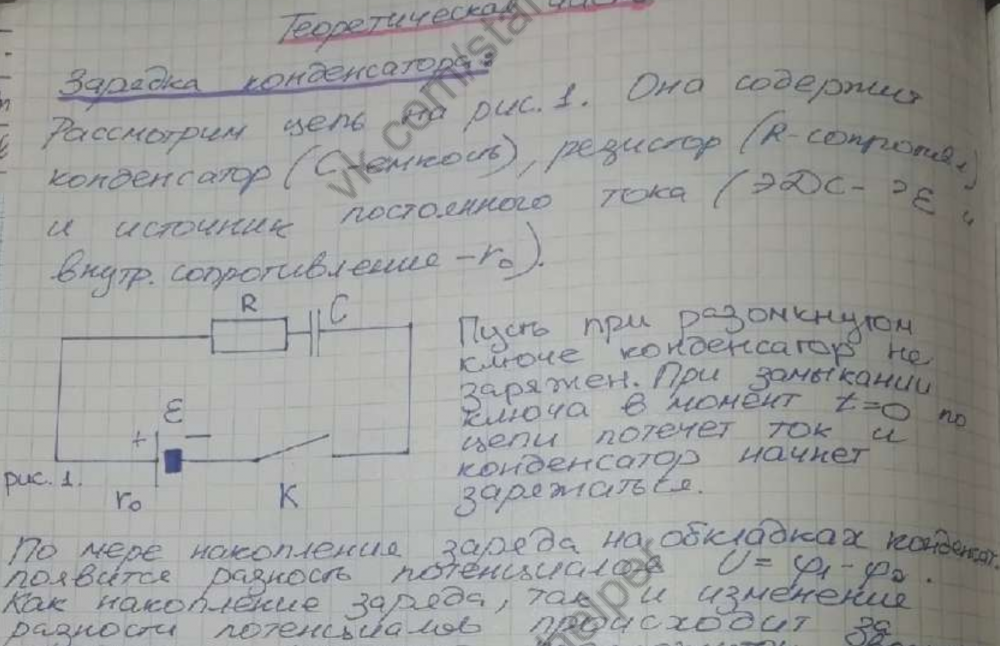 Теоретическая часть
Зарядка конденсатора:
Рассмотрим цепь на рис. 1. Она содержит
конденсатор (С-емкость), резистор (R-сопротивл)
и источник постоянного тока (ЭДС- Ɛ и
внутр. сопротивление - r₀).
R C
Ɛ
+ —
рис. 1.
r₀ K
Пусть при разомкнутом
ключе конденсатор не
заряжен. При замыкании
ключа в момент t=0 по
цепи потечет ток и
конденсатор начнет
заряжаться.
По мере накопления заряда на обкладках конденсат.
появится разность потенциалов U = φ₁ - φ₂.
Как накопление заряда, так и изменение
разности потенциалов происходит за
vk.com/stat
helper